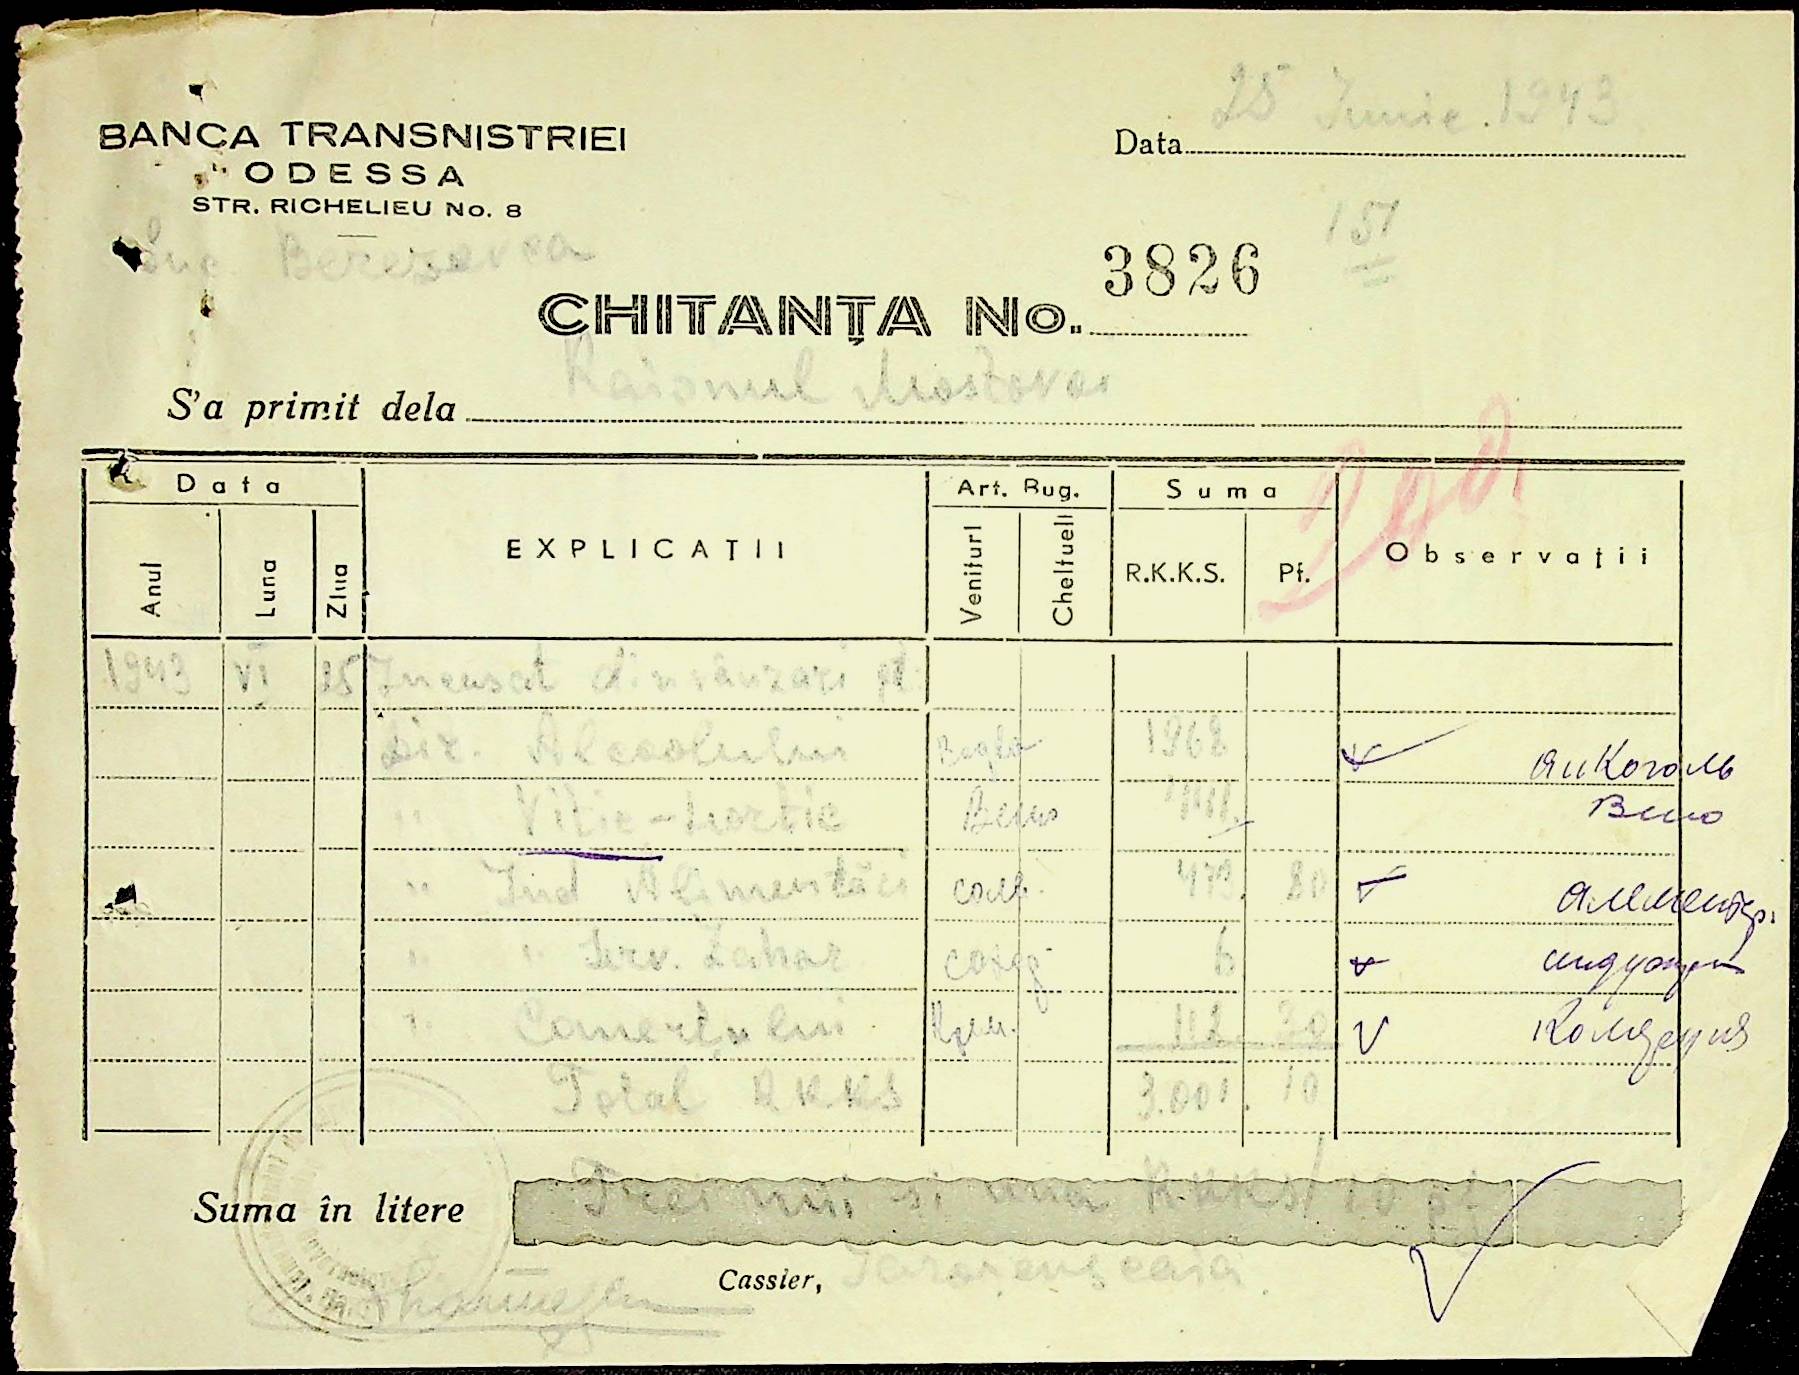 BANCA TRANSNISTRIEI
ODESSA
STR. RICHELIEU No. 8
Suc. Berezovca
Data 25 Iunie. 1943
151
CHITANȚA No. 3826
S'a primit dela Raionul Mostovoi
200
Data EXPLICAȚII Art. Bug. Suma Observații
Anul Luna Ziua Venituri Cheltueli R.K.K.S. Pf.
1943 VI 25 Incasat din vânzari pt.
Dir. Alcoolului 1968 алкоголь
" Viti-hortic Вино 441. Вино
" Ind Alimentãri соль 473. 80
" " Serv. Zahar сахар 6
" Comerțului 112 30
Total RKKS 3.001. 10
Suma în litere Trei mii si una RKKS/10 pf
Cassier,